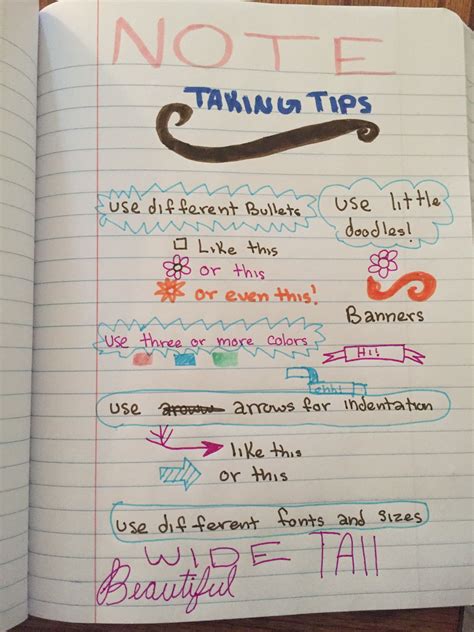 NOTE
TAKING TIPS
use different Bullets
Like this
or this
or even this!
use little
doodles!
Banners
Hi!
use three or more colors
ohh!
use arrows for indentation
like this
or this
use different fonts and sizes
WIDE TAll
Beautiful